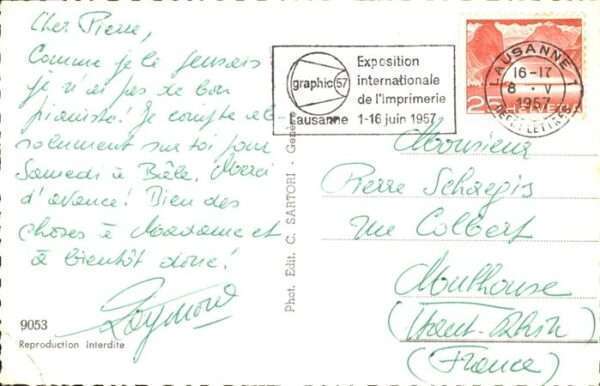 Cher Pierre,
Comme je le pensais
je n'ai pas de bon
pianiste! Je compte ab-
solument sur toi pour
Samedi à Bâle. Merci
d'avance! Bien des
choses à Madame et
à bientôt donc!
Raymond
9053
Reproduction interdite
Phot. Edit. C. SARTORI - Genè
graphic 57
Lausanne
Exposition
internationale
de l'Imprimerie
1-16 juin 1957
LAUSANNE 1
16-17
8 · V
1957
Monsieur
Pierre
rue Colbert
Moulhouse
(Haut-Rhin)
(France)